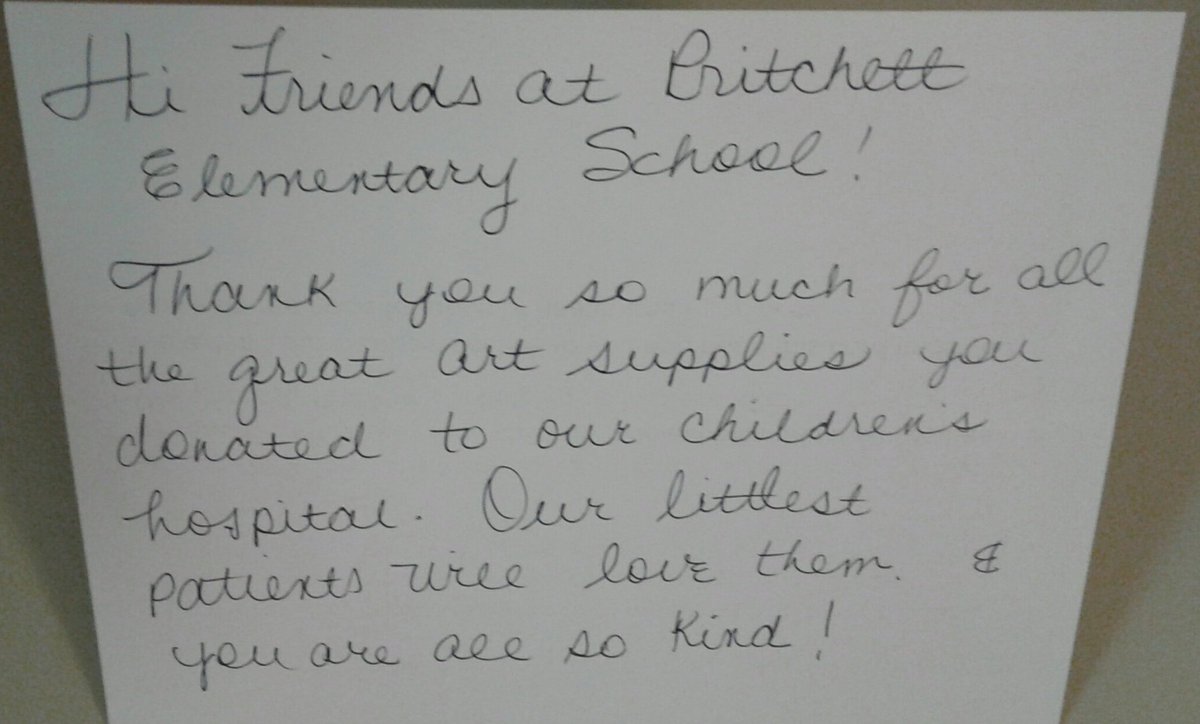 Hi Friends at Pritchett
Elementary School!
Thank you so much for all
the great art supplies you
donated to our children's
hospital. Our littlest
patients will love them. &
you are all so kind!